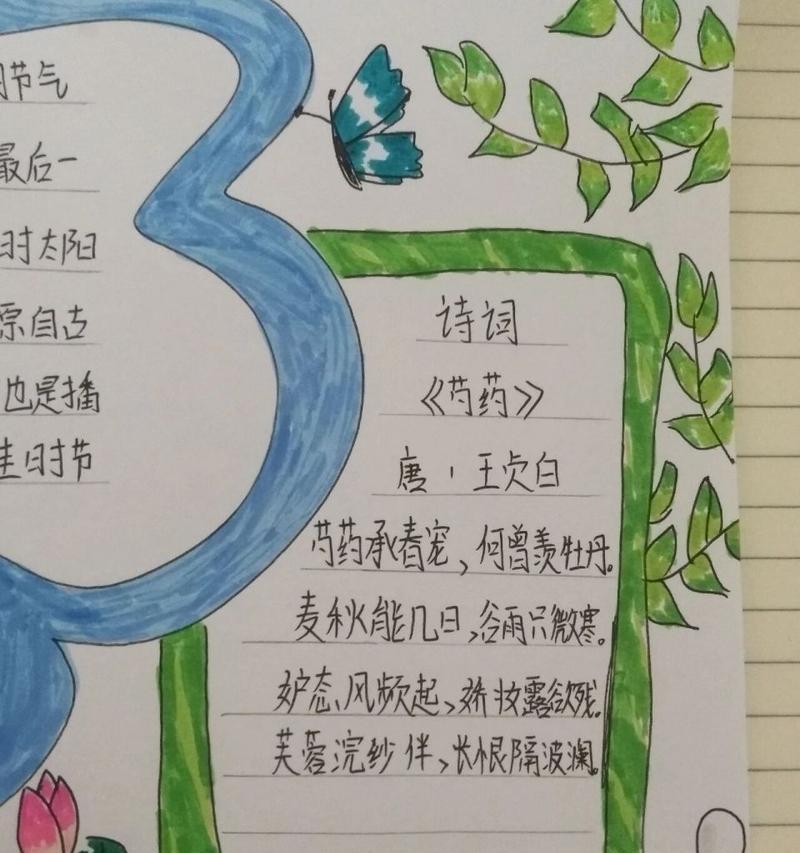 节气
最后一
时太阳
原自古
也是播
佳时节
诗词
《芍药》
唐、王贞白
芍药承春宠，何曾羡牡丹。
麦秋能几日，谷雨只微寒。
妒态、风频起，娇妆露欲残。
芙蓉浣纱伴，长恨隔波澜。